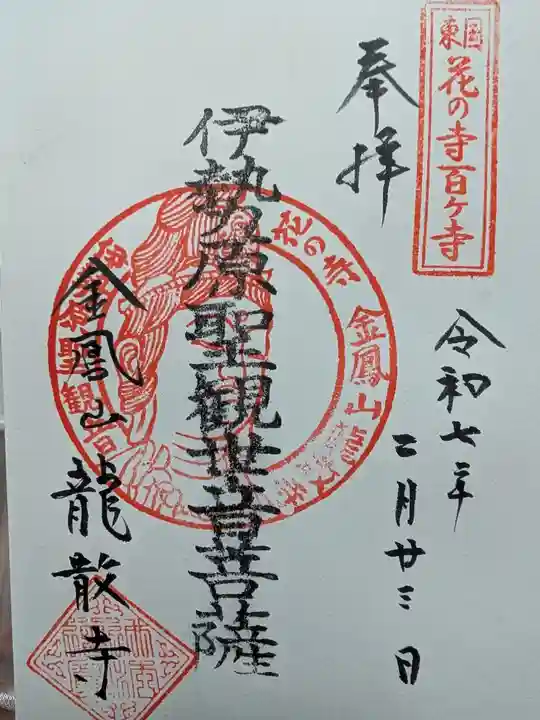 東国
花の寺百ケ寺
奉拝
令和七年
二月廿三日
伊勢原聖観世音菩薩
花の寺
金鳳山
金鳳山龍散寺